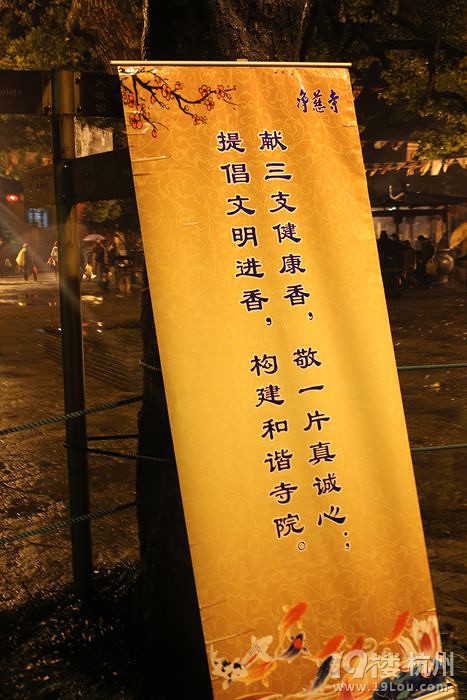 净慈寺
献三支健康香，敬一片真诚心；
提倡文明进香，构建和谐寺院。
19楼 杭州
www.19lou.com